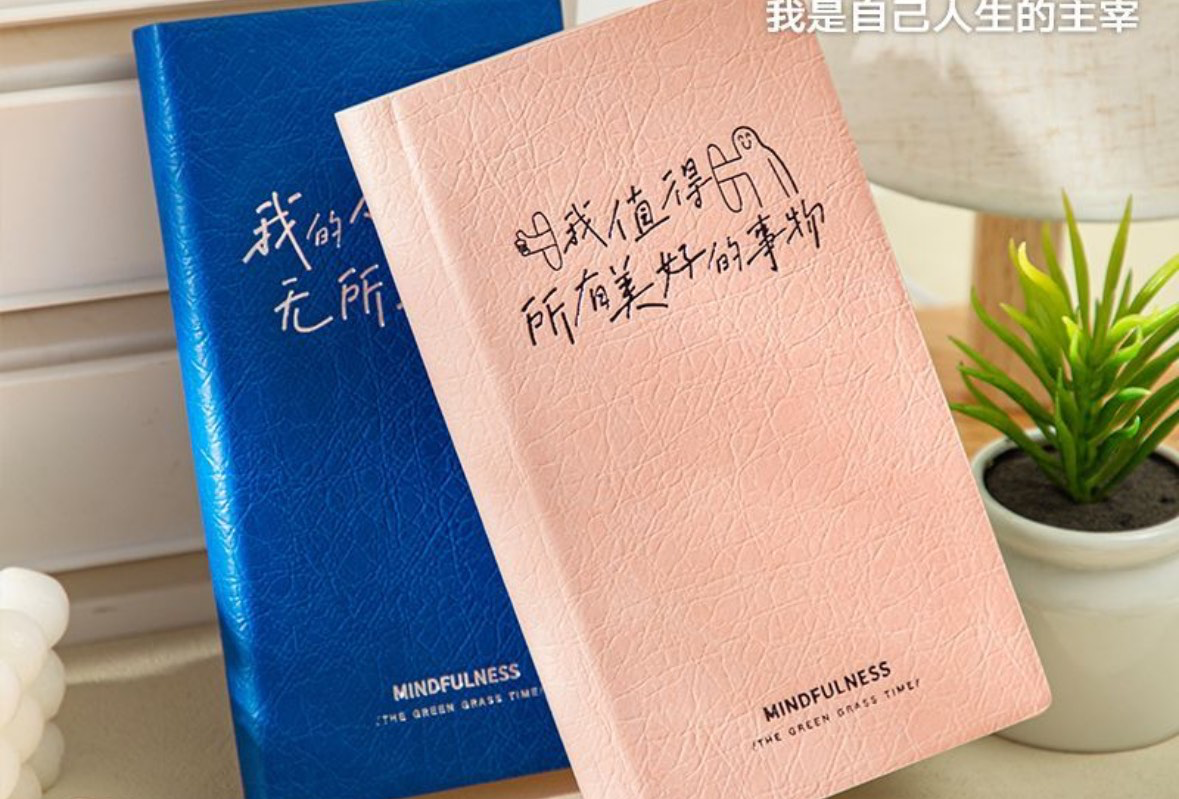 我是自己人生的主宰
我的
无所
MINDFULNESS
/THE GREEN GRASS TIME/
我值得
所有美好的事物
MINDFULNESS
/THE GREEN GRASS TIME/